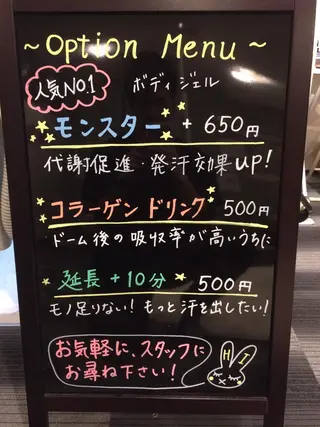 ~ Option Menu ~
人気NO.1
ボディジェル
モンスター + 650円
代謝促進・発汗効果UP!
コラーゲンドリンク 500円
ドーム後の吸収率が高いうちに
延長+10分 500円
モノ足りない! もっと汗を出したい!
お気軽に、スタッフに
お尋ね下さい!
HI